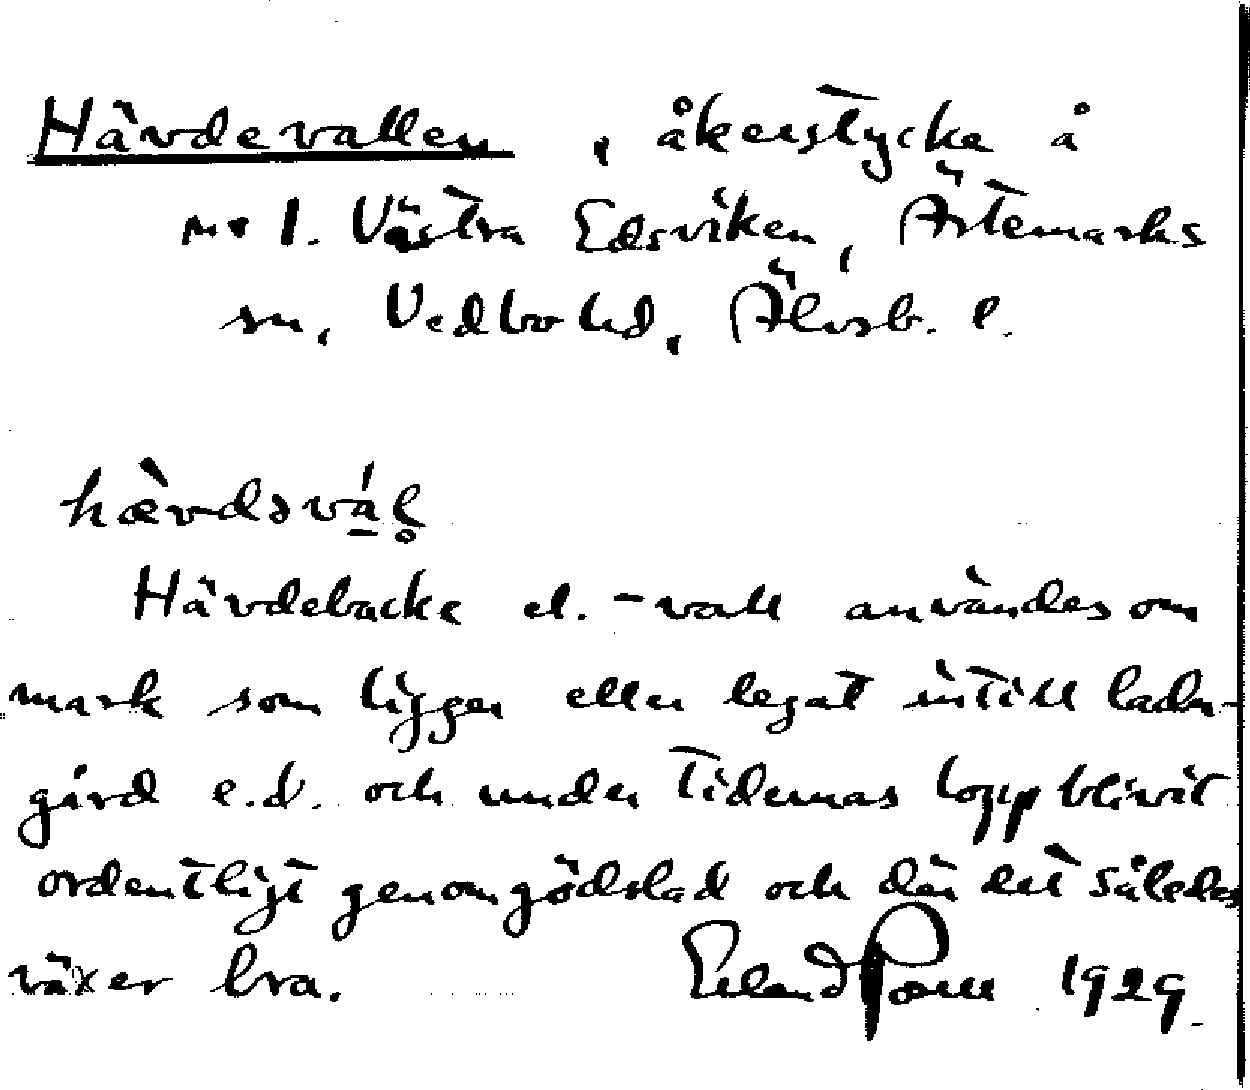 Hävdevallen, åkerstycke å
nr 1. Västra Edsviken, Ärtemarks
sn, Vedbo hd, Älvsb. l.
hæ̀vdəvá̱l̥
Hävdebacke el. -vall användes om
mark som ligger eller legat intill ladu-
gård e.d. och under tidernas lopp blivit
ordentligt genomgödslad och där det således
växer bra. Erland 1929